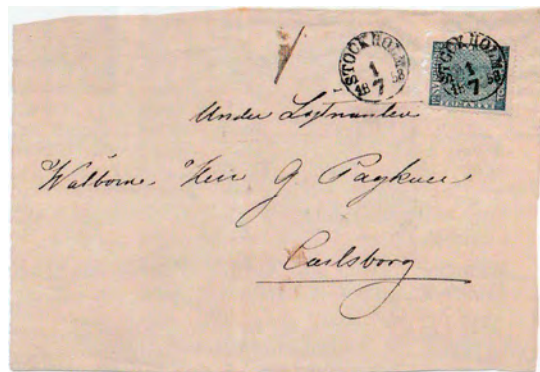 STOCKHOLM
1
7
18 58
STOCKHOLM
1
7
18 58
Under Löjtnanten
Wälborne Herr G Paykull
Carlsborg